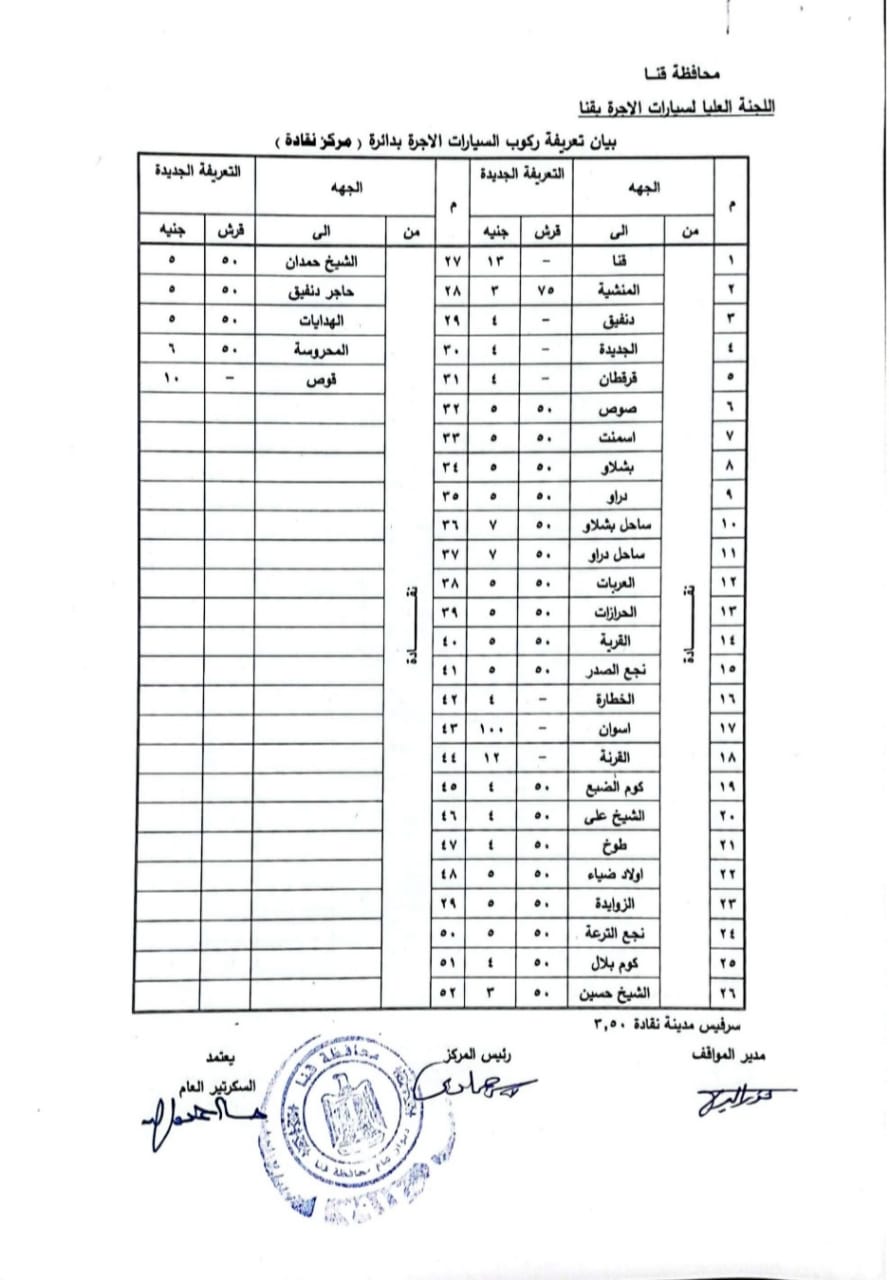 محافظة قنـا
اللجنة العليا لسيارات الاجرة بقنا
بيان تعريفة ركوب السيارات الاجرة بدائرة ( مركز نقادة )
م الجهه التعريفة الجديدة م الجهه التعريفة الجديدة
من الى قرش جنيه من الى قرش جنيه
نقـــــادة نقـــــادة
١ قنا – ١٣ ٢٧ الشيخ حمدان ٥٠ ٥
٢ المنشية ٧٥ ٣ ٢٨ حاجر دنفيق ٥٠ ٥
٣ دنفيق – ٤ ٢٩ الهدايات ٥٠ ٥
٤ الجديدة – ٤ ٣٠ المحروسة ٥٠ ٦
٥ قرقطان – ٤ ٣١ قوص – ١٠
٦ صوص ٥٠ ٥ ٣٢
٧ اسمنت ٥٠ ٥ ٣٣
٨ بشلاو ٥٠ ٥ ٣٤
٩ دراو ٥٠ ٥ ٣٥
١٠ ساحل بشلاو ٥٠ ٧ ٣٦
١١ ساحل دراو ٥٠ ٧ ٣٧
١٢ العربات ٥٠ ٥ ٣٨
١٣ الحرازات ٥٠ ٥ ٣٩
١٤ القرية ٥٠ ٥ ٤٠
١٥ نجع الصدر ٥٠ ٥ ٤١
١٦ الخطارة – ٤ ٤٢
١٧ اسوان – ١٠٠ ٤٣
١٨ القرنة – ١٢ ٤٤
١٩ كوم الضبع ٥٠ ٤ ٤٥
٢٠ الشيخ على ٥٠ ٤ ٤٦
٢١ طوخ ٥٠ ٤ ٤٧
٢٢ اولاد ضياء ٥٠ ٥ ٤٨
٢٣ الزوايدة ٥٠ ٥ ٢٩
٢٤ نجع الترعة ٥٠ ٥ ٥٠
٢٥ كوم بلال ٥٠ ٤ ٥١
٢٦ الشيخ حسين ٥٠ ٣ ٥٢
سرفيس مدينة نقادة ٣,٥٠
مدير المواقف رئيس المركز يعتمد
السكرتير العام
محافظة قنا
ديوان عام محافظة قنا